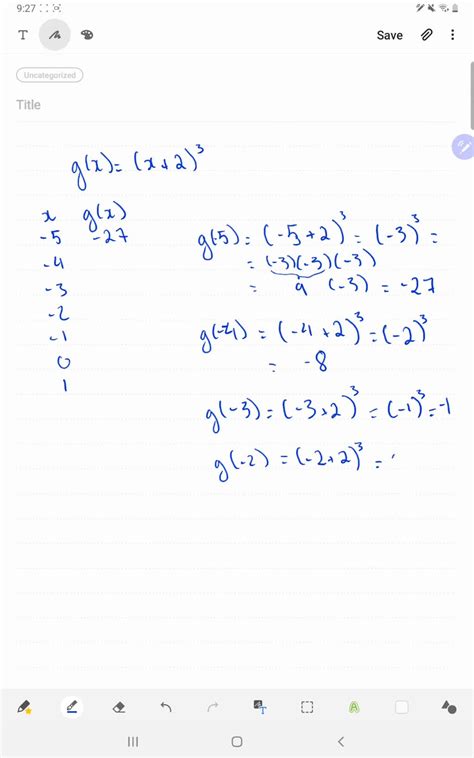 9:27
T Save
Uncategorized
Title
g(x) = (x+2)³
x g(x)
-5 -27
-4
-3
-2
-1
0
1
g(-5) = (-5+2)³ = (-3)³ =
= (-3)(-3)(-3)
= 9 (-3) = -27
g(-4) = (-4+2)³ = (-2)³
= -8
g(-3) = (-3+2)³ = (-1)³ = -1
g(-2) = (-2+2)³ =
T
A